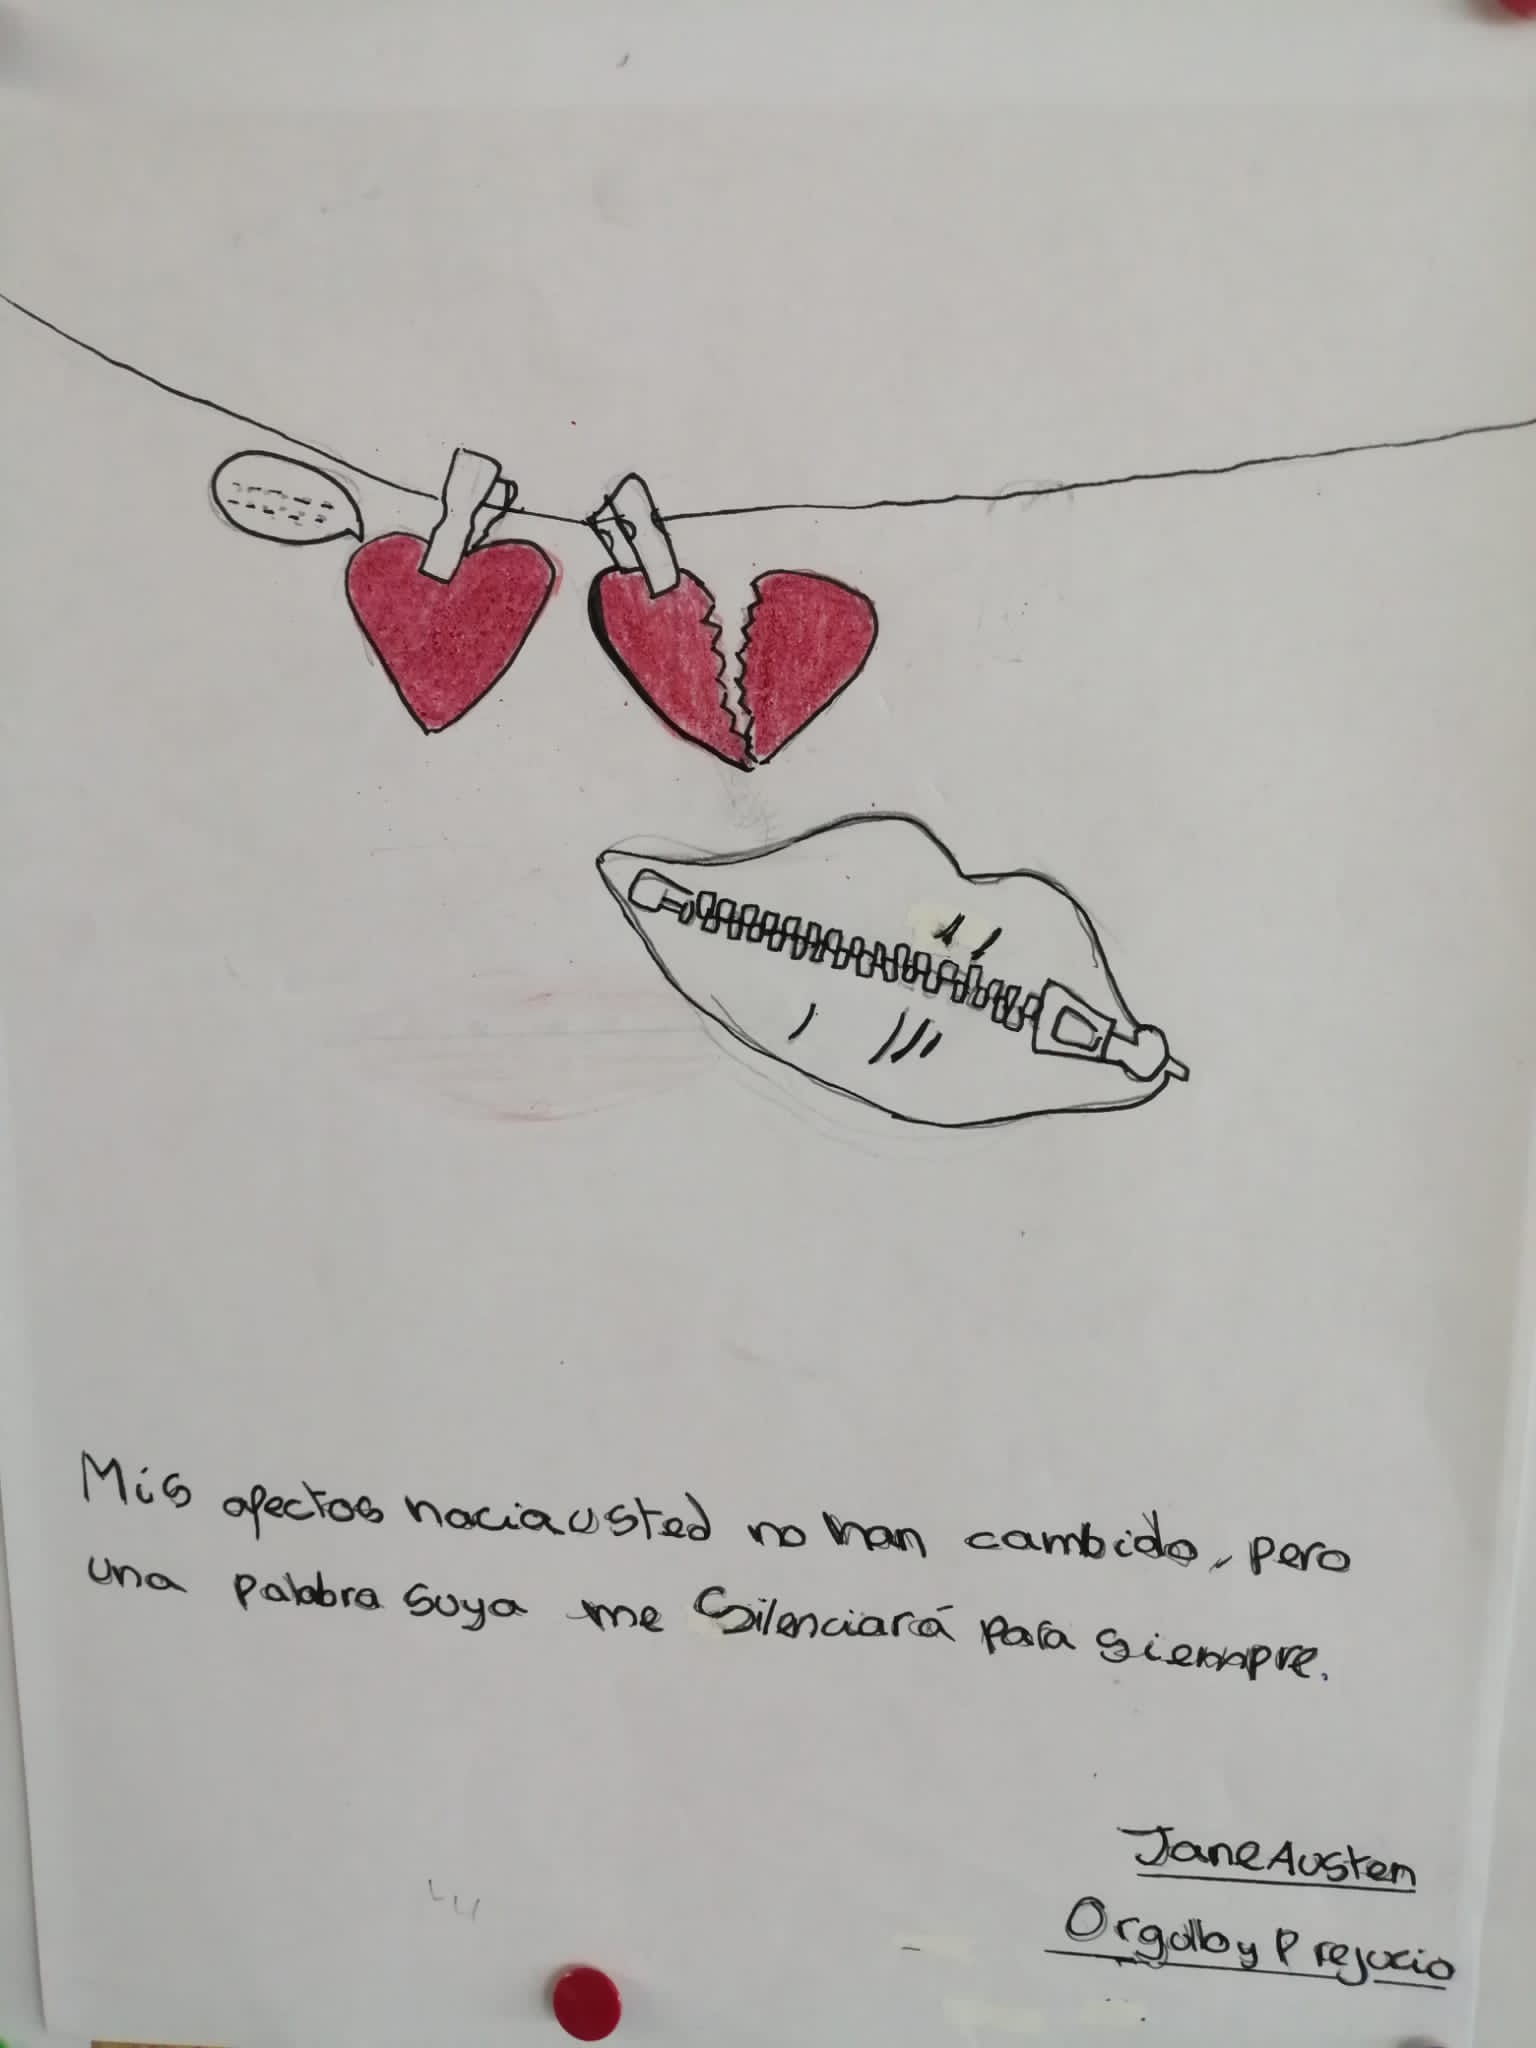 Mis afectos hacia usted no han cambido, pero
una palabra suya me silenciará para siempre.
Jane Austen
Orgullo y Prejucio